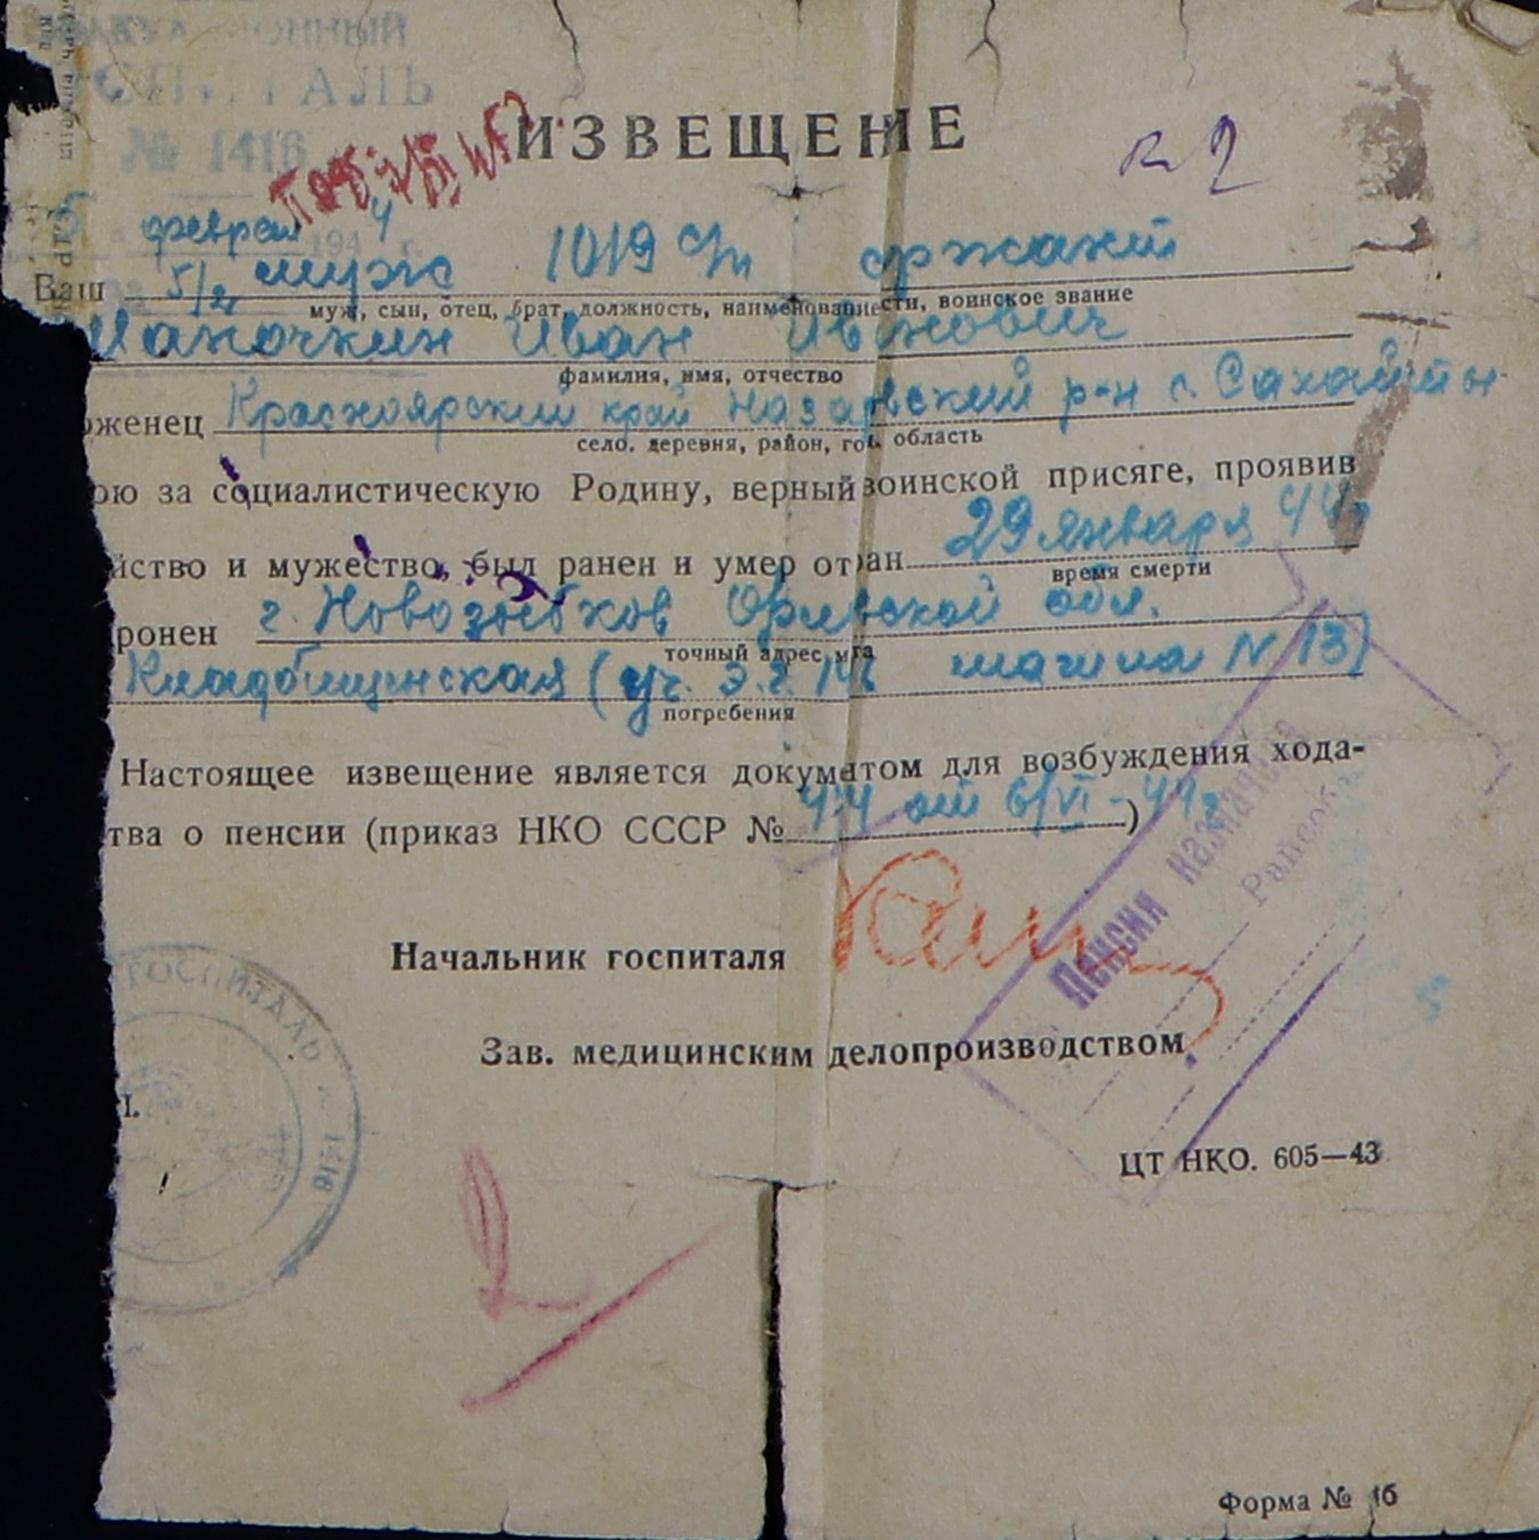 ГОСПИТАЛЬ
№ 1416
ИЗВЕЩЕНИЕ
5 феврал 1944 г.
Ваш муж 1019 с/п сржант
5/2
муж, сын, отец, брат, должность, наименование сти, воинское звание
Маночкин Иван Иванович
фамилия, имя, отчество
оженец Красноярский край Назаровский р-н с. Сахапты
село, деревня, район, гор. область
ою за социалистическую Родину, верный воинской присяге, проявив
йство и мужество, был ранен и умер от ран 29 января 44 г
время смерти
ронен г. Новозыбков Орловской обл.
точный адрес м та
Кладбищенская (уч. Э.Г. 14 магила N 13)
погребения
Настоящее извещение является документом для возбуждения хода-
тва о пенсии (приказ НКО СССР № 4.4 от 6/VI-44г)
Пенсия назначена
Райсоб
Начальник госпиталя
Зав. медицинским делопроизводством
ГОСПИТАЛЬ 1416
ЦТ НКО. 605—43
Форма № 16